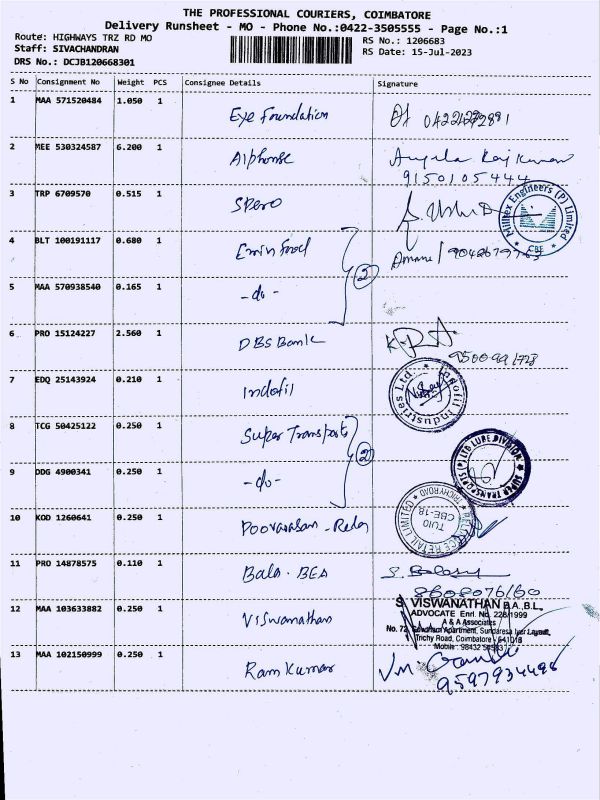 THE PROFESSIONAL COURIERS, COIMBATORE
Delivery Runsheet - MO - Phone No.:0422-3505555 - Page No.:1
Route: HIGHWAYS TRZ RD MO
Staff: SIVACHANDRAN
DRS No.: DCJB120668301
RS No.: 1206683
RS Date: 15-Jul-2023
S No Consignment No Weight PCS Consignee Details Signature
1 MAA 571520484 1.050 1 Eye Foundation
2 MEE 530324587 6.200 1 Alphonse
9150105444
3 TRP 6709570 0.515 1 Spero
Milltex Engineers (P) Limited
CBE
4 BLT 100191117 0.680 1 Emin Food
2
5 MAA 570938540 0.165 1 -do-
6 PRO 15124227 2.560 1 DBS Bank
7 EDQ 25143924 0.210 1 Indofil
Indofil Industries Ltd.
8 TCG 50425122 0.250 1 Super Transports
2
SUPER TRANSPORTS (P) LTD LUBE DIVISION
9 DDG 4900341 0.250 1 -do-
10 KOD 1260641 0.250 1 Poovarasan -
RELIANCE RETAIL LIMITED
TUIO
CBE-18
TRICHY ROAD
11 PRO 14878575 0.110 1 Bala. BEA
12 MAA 103633882 0.250 1 Viswanathan
S. VISWANATHAN B.A.,B.L.,
ADVOCATE Enrl. No. 226/1999
A & A Associates
Apartment, Sundaresa Iyer Layout,
Trichy Road, Coimbatore - 641018
Mobile : 98432
13 MAA 102150999 0.250 1 Ram Kumar
9597934498